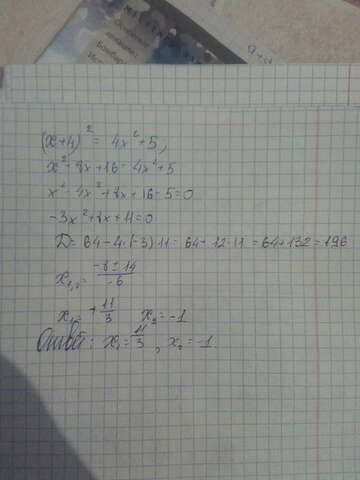 (x+4)² = 4x²+5,
x²+8x+16=4x²+5
x²-4x²+8x+16-5=0
-3x²+8x+11=0
D=64-4·(-3)·11=64+12·11=64+132=196
x₁,₂= (-8±14)/-6
x₁=+11/3 x₂=-1
Ответ: x₁=11/3, x₂=-1